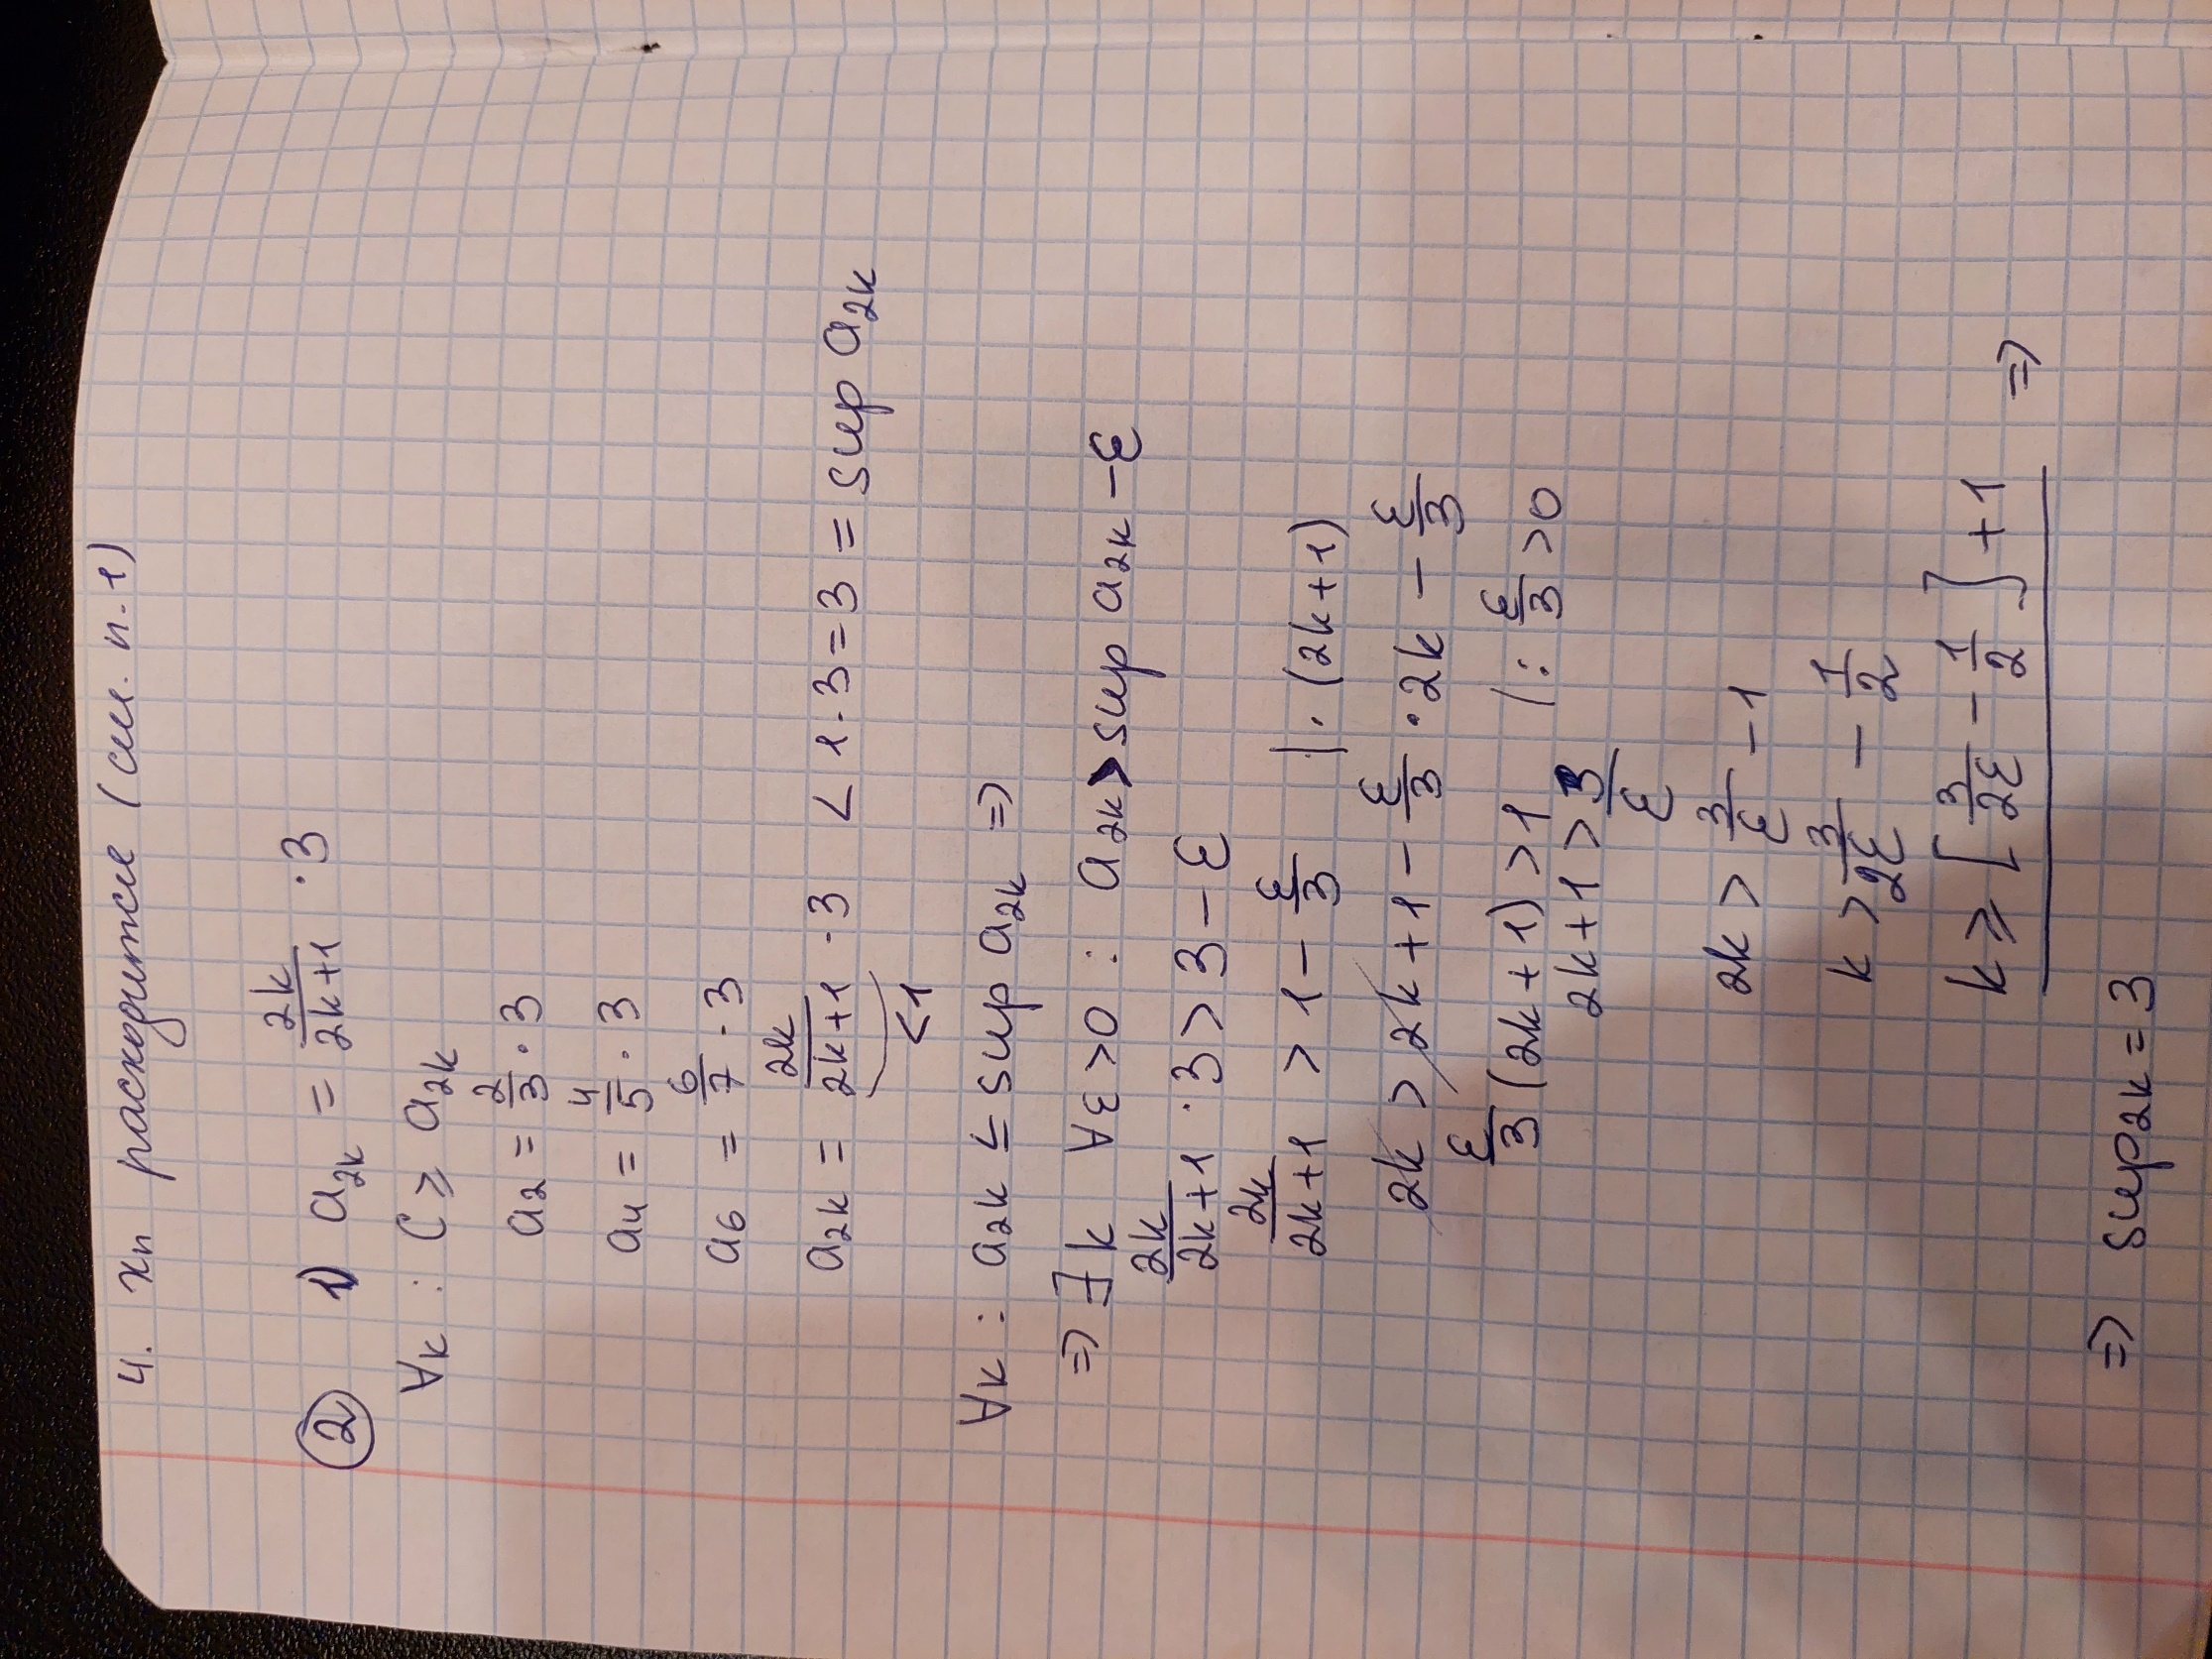 4. xₙ расходится (см. п.1)
② 1) a₂ₖ = 2k/(2k+1) · 3
∀k : C ⩾ a₂ₖ
a₂ = 2/3 · 3
a₄ = 4/5 · 3
a₆ = 6/7 · 3
a₂ₖ = 2k/(2k+1) · 3 < 1 · 3 = 3 = sup a₂ₖ
<1
∀k : a₂ₖ ≤ sup a₂ₖ ⇒
⇒ ∃k ∀ε>0 : a₂ₖ > sup a₂ₖ - ε
2k/(2k+1) · 3 > 3 - ε
2k/(2k+1) > 1 - ε/3 | · (2k+1)
2k > 2k + 1 - ε/3 · 2k - ε/3
ε/3 (2k+1) > 1 | : ε/3 > 0
2k+1 > 3/ε
2k > 3/ε - 1
k > 3/2ε - 1/2
k ⩾ [3/2ε - 1/2] + 1 ⇒
⇒ sup₂ₖ = 3